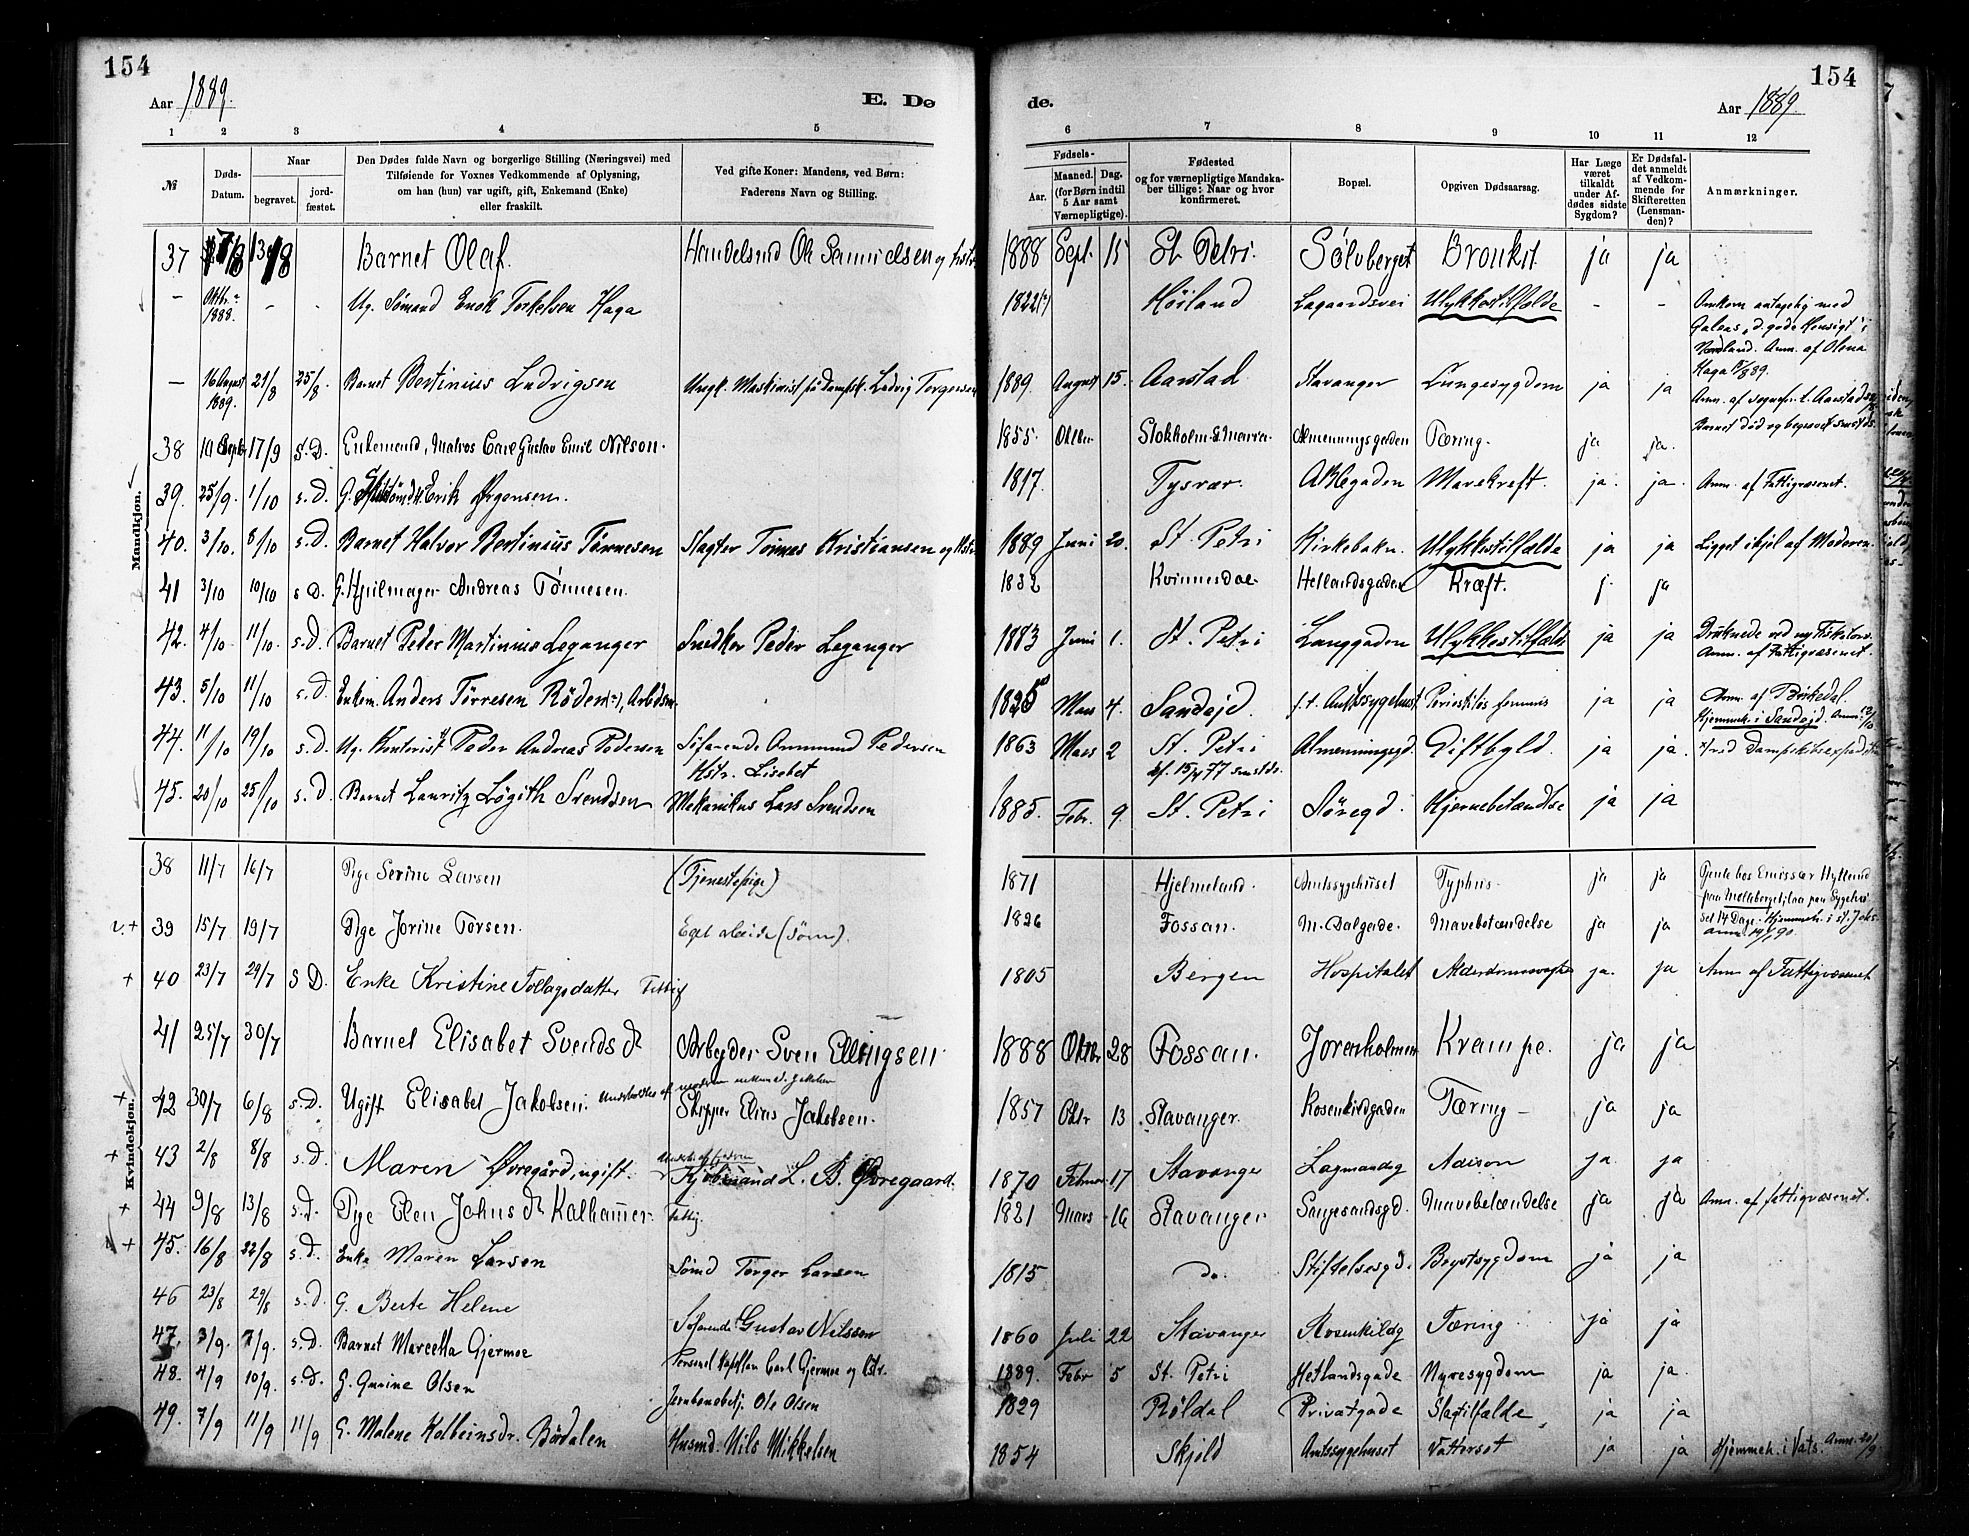 154
154
Aar 1889.
E. Døde.
Aar 1889.
1 2 3 4 5 6 7 8 9 10 11 12
№
Døds-Datum.
Naar
begravet. jordfæstet.
Den Dødes fulde Navn og borgerlige Stilling (Næringsvei) med Tilføiende for Voxnes Vedkommende af Oplysning, om han (hun) var ugift, gift, Enkemand (Enke) eller fraskilt.
Ved gifte Koner: Mandens, ved Børn: Faderens Navn og Stilling.
Fødsels-
Aar. Maaned. Dag. (for Børn indtil 5 Aar samt Værnepligtige).
Fødested og for værnepligtige Mandskaber tillige: Naar og hvor konfirmeret.
Bopæl.
Opgiven Dødsaarsag.
Har Læge været tilkaldt under Afdødes sidste Sygdom?
Er Dødsfaldet anmeldt af Vedkommende for Skifteretten (Lensmanden)?
Anmærkninger.
Mandkjøn.
37 Barnet Olaf. 1888 Sept. 15 St. Petri. Sølvberget Bronkit ja ja
– Oktbr. 1888. – – Ug. Sømand Enok Torkelsen Haga 1822(?) Høiland Lagaardsvei Ulykkestilfælde – –
– 16 August 1889. 21/8 25/8. Barnet Bertinius Ludvigsen Ungk. Maskinist på Dampsk. Ludvig Torgersen 1889. August 15. Aarstad Stavanger Lungesygdom ja ja
Barnet død og begravet smstds.
38 10 Septb 17/9 s.D. Enkemand, Matros Carl Gustav Emil Nilson. 1855. Oktbr Stokholm Almenningsgaden Tæring. ja ja.
39. 25/9. 1/10 s.D. Erik Ørgensen. 1817. Tysvær. Møkegaden Mavekræft. ja. ja. Anm. af Fattigvæsenet.
40. 3/10. 8/10 s.D. Barnet Halvor Bertinius Tønnesen Slagter Tønnes Kristiansen og Hstr. 1889 Juni 20. St. Petri Kirkebakn. Ulykkestilfælde ja ja Ligget ihjel af Moderen.
41 3/10 10/10 s.D. G. Hjulmager Andreas Tønnesen. 1832 Kvinnesdal Hetlandsgaden Kræft. j. ja
42. 4/10 11/10. s.D. Barnet Peder Martinius Leganger Snedker Peder Leganger 1883 Juni 1. St. Petri Langgaden Ulykkestilfælde ja ja Druknede ved
Anm. af Fattigvæsenet.
43. 5/10 11/10 s.D. Enkem. Anders Tørresen Arbdsm. Mars 4. Sandeid. f.t. Amtssygehust. ja ja
Hjemmeh. i Sandeid.
44. 11/10 19/10 s.D. Ug. Kontorist Peder Andreas Pedersen Søfarende Ommund Pedersen Hstr. Lisebet 1863 Mars 2 St. Petri kf. 15/4 77 smstds. Almenningsgd. Giftbyld. ja ja.
45. 20/10 25/10 s.D. Barnet Lauritz Svendsen Mekanikus Lars Svendsen 1885. Febr. 9. St. Petri Søregd. Hjernebetændlse ja ja
Kvindekjøn.
38 11/7 16/7 Pige Serine Larsen (Tjenestepige) 1871 Hjelmeland. Amtssygehuset Typhus. ja ja
39 15/7 19/7 Pige Jorine Torsen. Eget Arbeide (Søm). 1826 Fossan. M. Dalgade. Mavebetændelse ja ja
40 23/7 29/7 s D. Enke Kristine Tollagsdatter Fattig 1805 Bergen Hospitalet ja. ja Anm af Fattigvæsenet
41 25/7 30/7 Barnet Elisabet Svends d. Arbeider Sven Ellingsen 1888 Oktbr 28 Fossan. Jorenholmen Krampe. ja ja
42 30/7 6/8 s.D. Ugift Elisabet Jakobsen. Skipper Elias Jakobsen. 1857 Oktr 13 Stavanger. Rosenkildgaden Tæring – ja ja
43 2/8 8/8 s.D. Maren Øvregård, ugift. Kjøbmand L. B. Øvregaard. 1870 Februar 17 Stavanger Lagmandsg Adison ja. ja
44 9/8 13/8 s.D. Pige Elen Johns d. Kalhammer. Fattig. 1821 Mars 16 Stavanger Sangesandsgd. Mavebetændelse ja ja Anm. af Fattigvæsenet.
45. 16/8 22/8 s.D. Enke Maren Larsen Sømd Torger Larsen 1815 do. Stiftelsesgd. Brystsygdom ja ja
46 23/8 29/8 s.D. G. Berte Helene Søfarende Gustav Nilsson 1860 Juli 22 Stavanger Rosenkildg Tæring ja ja
47. 3/9. 7/9. s.D. Barnet Marcella Gjermoe Personel Kapellan Carl Gjermoe og Hstr. 1889. Febr 5 St. Petri Hetlandsgade Nyresygdom ja ja.
48. 4/9 10/9. s.D. G. Gurine Olsen Jernbanebetj. Ole Olsen 1829 Røldal Privatgade Slagtilfælde ja ja
49. 7/9 11/9 11/9 G. Malene Kolbeinsdr. Bordalen Husmd. Nils Mikkelsen 1854 Skjold Amtssygehuset Vattersot ja ja Hjemmeh. i Vats. Anm. 20/9